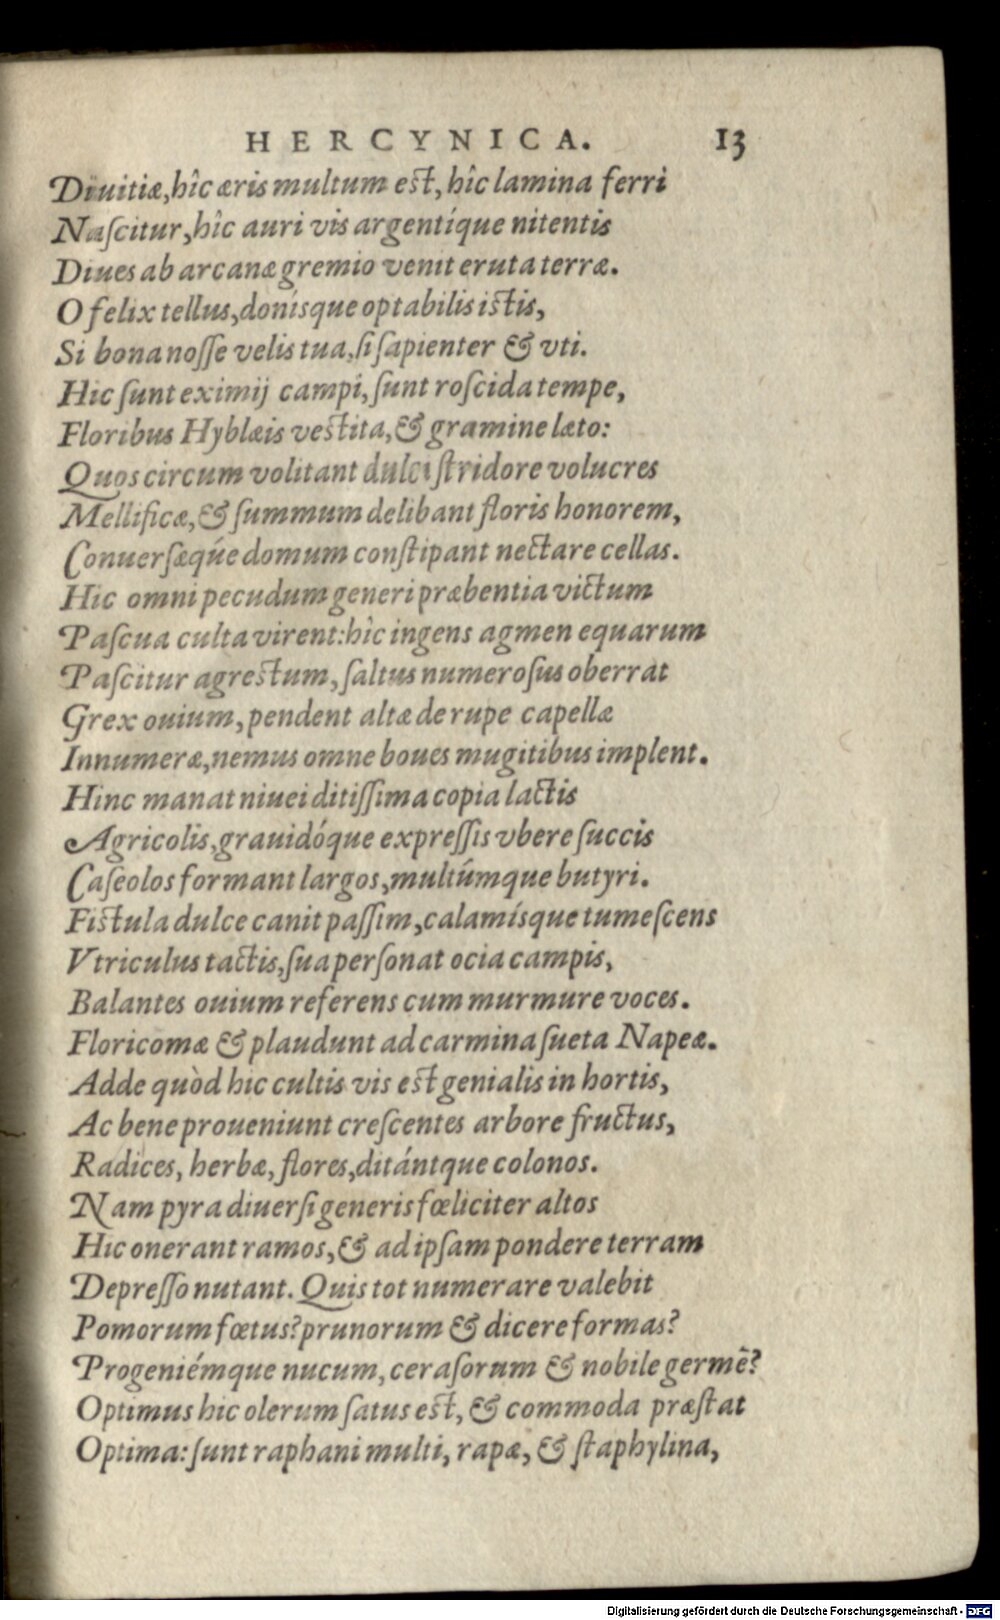 HERCYNICA. 13
Diuitiæ, hîc æris multum est, hîc lamina ferri
Naſcitur, hîc auri vis argentíque nitentis
Diues ab arcanæ gremio venit eruta terræ.
O felix tellus, donísque optabilis istis,
Si bona noſſe velis tua, ſi ſapienter & vti.
Hic ſunt eximij campi, ſunt roſcida tempe,
Floribus Hyblæis vestita, & gramine læto:
Quos circum volitant dulci ſtridore volucres
Mellificæ, & ſummum delibant floris honorem,
Conuerſæq́ue domum conſtipant nectare cellas.
Hic omni pecudum generi præbentia victum
Paſcua culta virent: hîc ingens agmen equarum
Paſcitur agrestum, ſaltus numeroſus oberrat
Grex ouium, pendent altæ de rupe capellæ
Innumeræ, nemus omne boues mugitibus implent.
Hinc manat niuei ditiſſima copia lactis
Agricolis, grauidóque expreſſis vbere ſuccis
Caſeolos formant largos, multúmque butyri.
Fistula dulce canit paſſim, calamísque tumeſcens
Vtriculus tactis, ſua perſonat ocia campis,
Balantes ouium referens cum murmure voces.
Floricomæ & plaudunt ad carmina ſueta Napeæ.
Adde quòd hic cultis vis est genialis in hortis,
Ac bene proueniunt creſcentes arbore fructus,
Radices, herbæ, flores, ditántque colonos.
Nam pyra diuerſi generis fœliciter altos
Hic onerant ramos, & ad ipſam pondere terram
Depreſſo nutant. Quis tot numerare valebit
Pomorum fœtus? prunorum & dicere formas?
Progeniémque nucum, ceraſorum & nobile germē?
Optimus hic olerum ſatus est, & commoda præſtat
Optima: ſunt raphani multi, rapæ, & ſtaphylina,
Digitalisierung gefördert durch die Deutsche Forschungsgemeinschaft - DFG